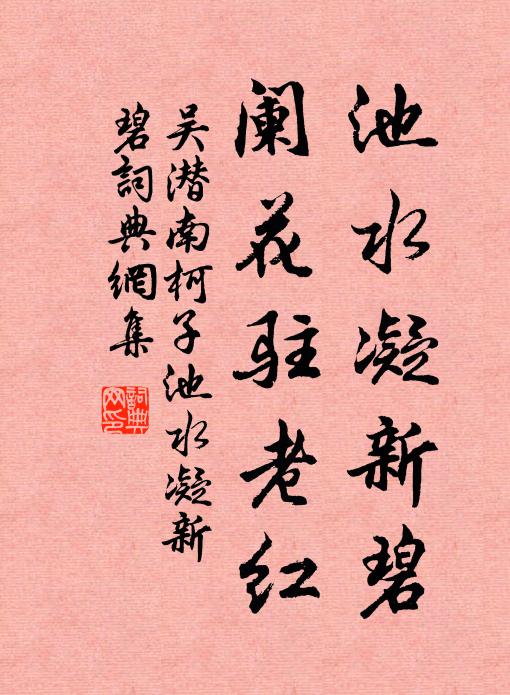 池水凝新碧
阑花驻老红
吴潜南柯子池水凝新
碧詞典網集
詞典
网印